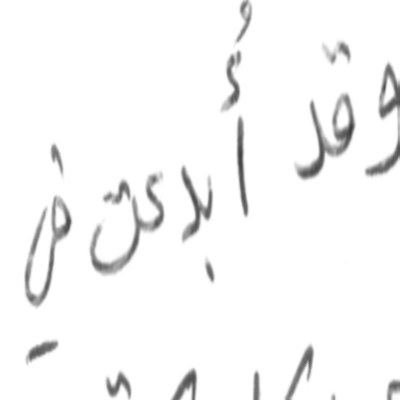 وقد أُبدعت في